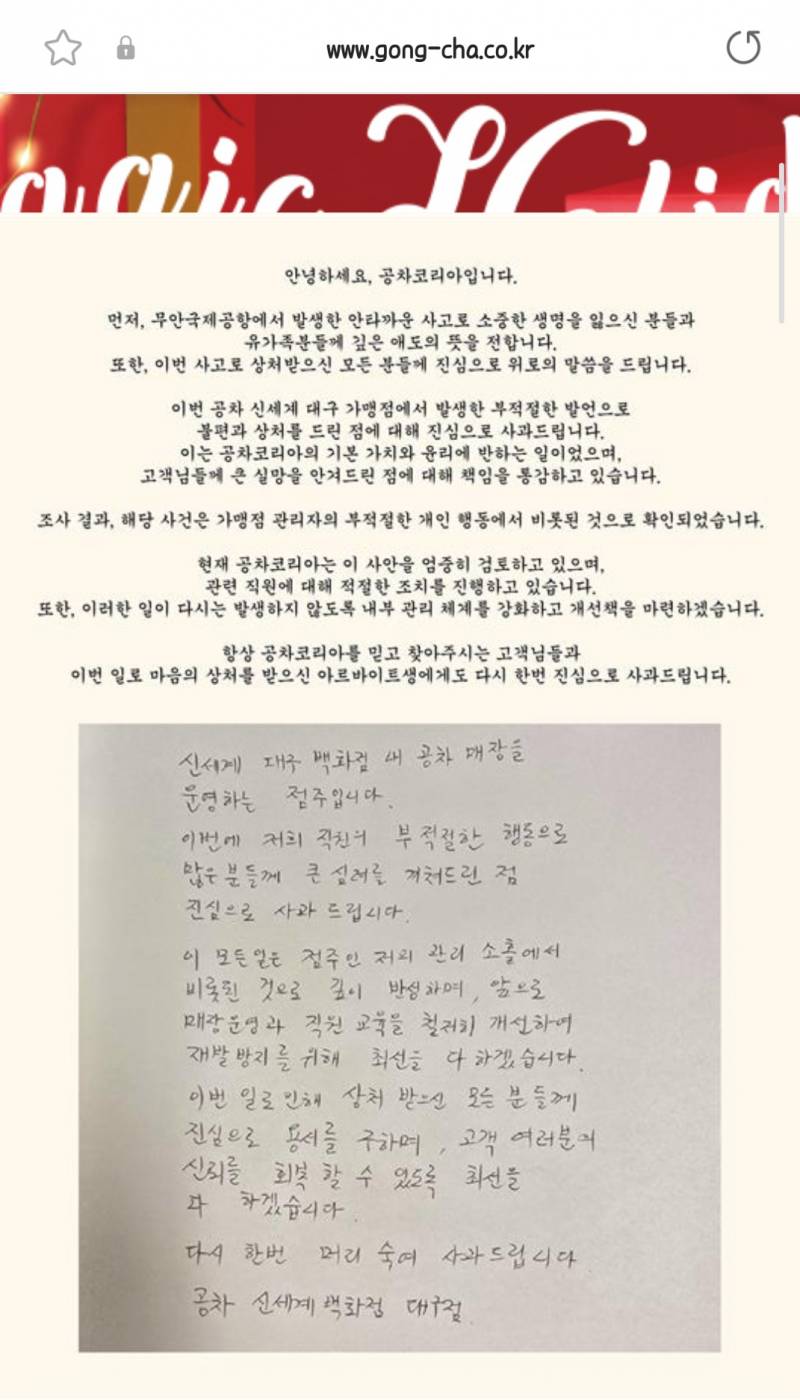 www.gong-cha.co.kr
안녕하세요, 공차코리아입니다.
먼저, 무안국제공항에서 발생한 안타까운 사고로 소중한 생명을 잃으신 분들과
유가족분들께 깊은 애도의 뜻을 전합니다.
또한, 이번 사고로 상처받으신 모든 분들께 진심으로 위로의 말씀을 드립니다.
이번 공차 신세계 대구 가맹점에서 발생한 부적절한 발언으로
불편과 상처를 드린 점에 대해 진심으로 사과드립니다.
이는 공차코리아의 기본 가치와 윤리에 반하는 일이었으며,
고객님들께 큰 실망을 안겨드린 점에 대해 책임을 통감하고 있습니다.
조사 결과, 해당 사건은 가맹점 관리자의 부적절한 개인 행동에서 비롯된 것으로 확인되었습니다.
현재 공차코리아는 이 사안을 엄중히 검토하고 있으며,
관련 직원에 대해 적절한 조치를 진행하고 있습니다.
또한, 이러한 일이 다시는 발생하지 않도록 내부 관리 체계를 강화하고 개선책을 마련하겠습니다.
항상 공차코리아를 믿고 찾아주시는 고객님들과
이번 일로 마음의 상처를 받으신 아르바이트생에게도 다시 한번 진심으로 사과드립니다.
신세계 대구 백화점 내 공차 매장을
운영하는 점주입니다.
이번에 저희 직원의 부적절한 행동으로
많은 분들께 큰 심려를 끼쳐드린 점
진심으로 사과 드립니다.
이 모든일은 점주인 저의 관리 소홀에서
비롯된 것으로 깊이 반성하며, 앞으로
매장운영과 직원 교육을 철저히 개선하여
재발 방지를 위해 최선을 다 하겠습니다.
이번 일로 인해 상처 받으신 모든 분들께
진심으로 용서를 구하며, 고객 여러분의
신뢰를 회복 할 수 있도록 최선을
다 하겠습니다.
다시 한번 머리 숙여 사과드립니다
공차 신세계백화점 대구점.